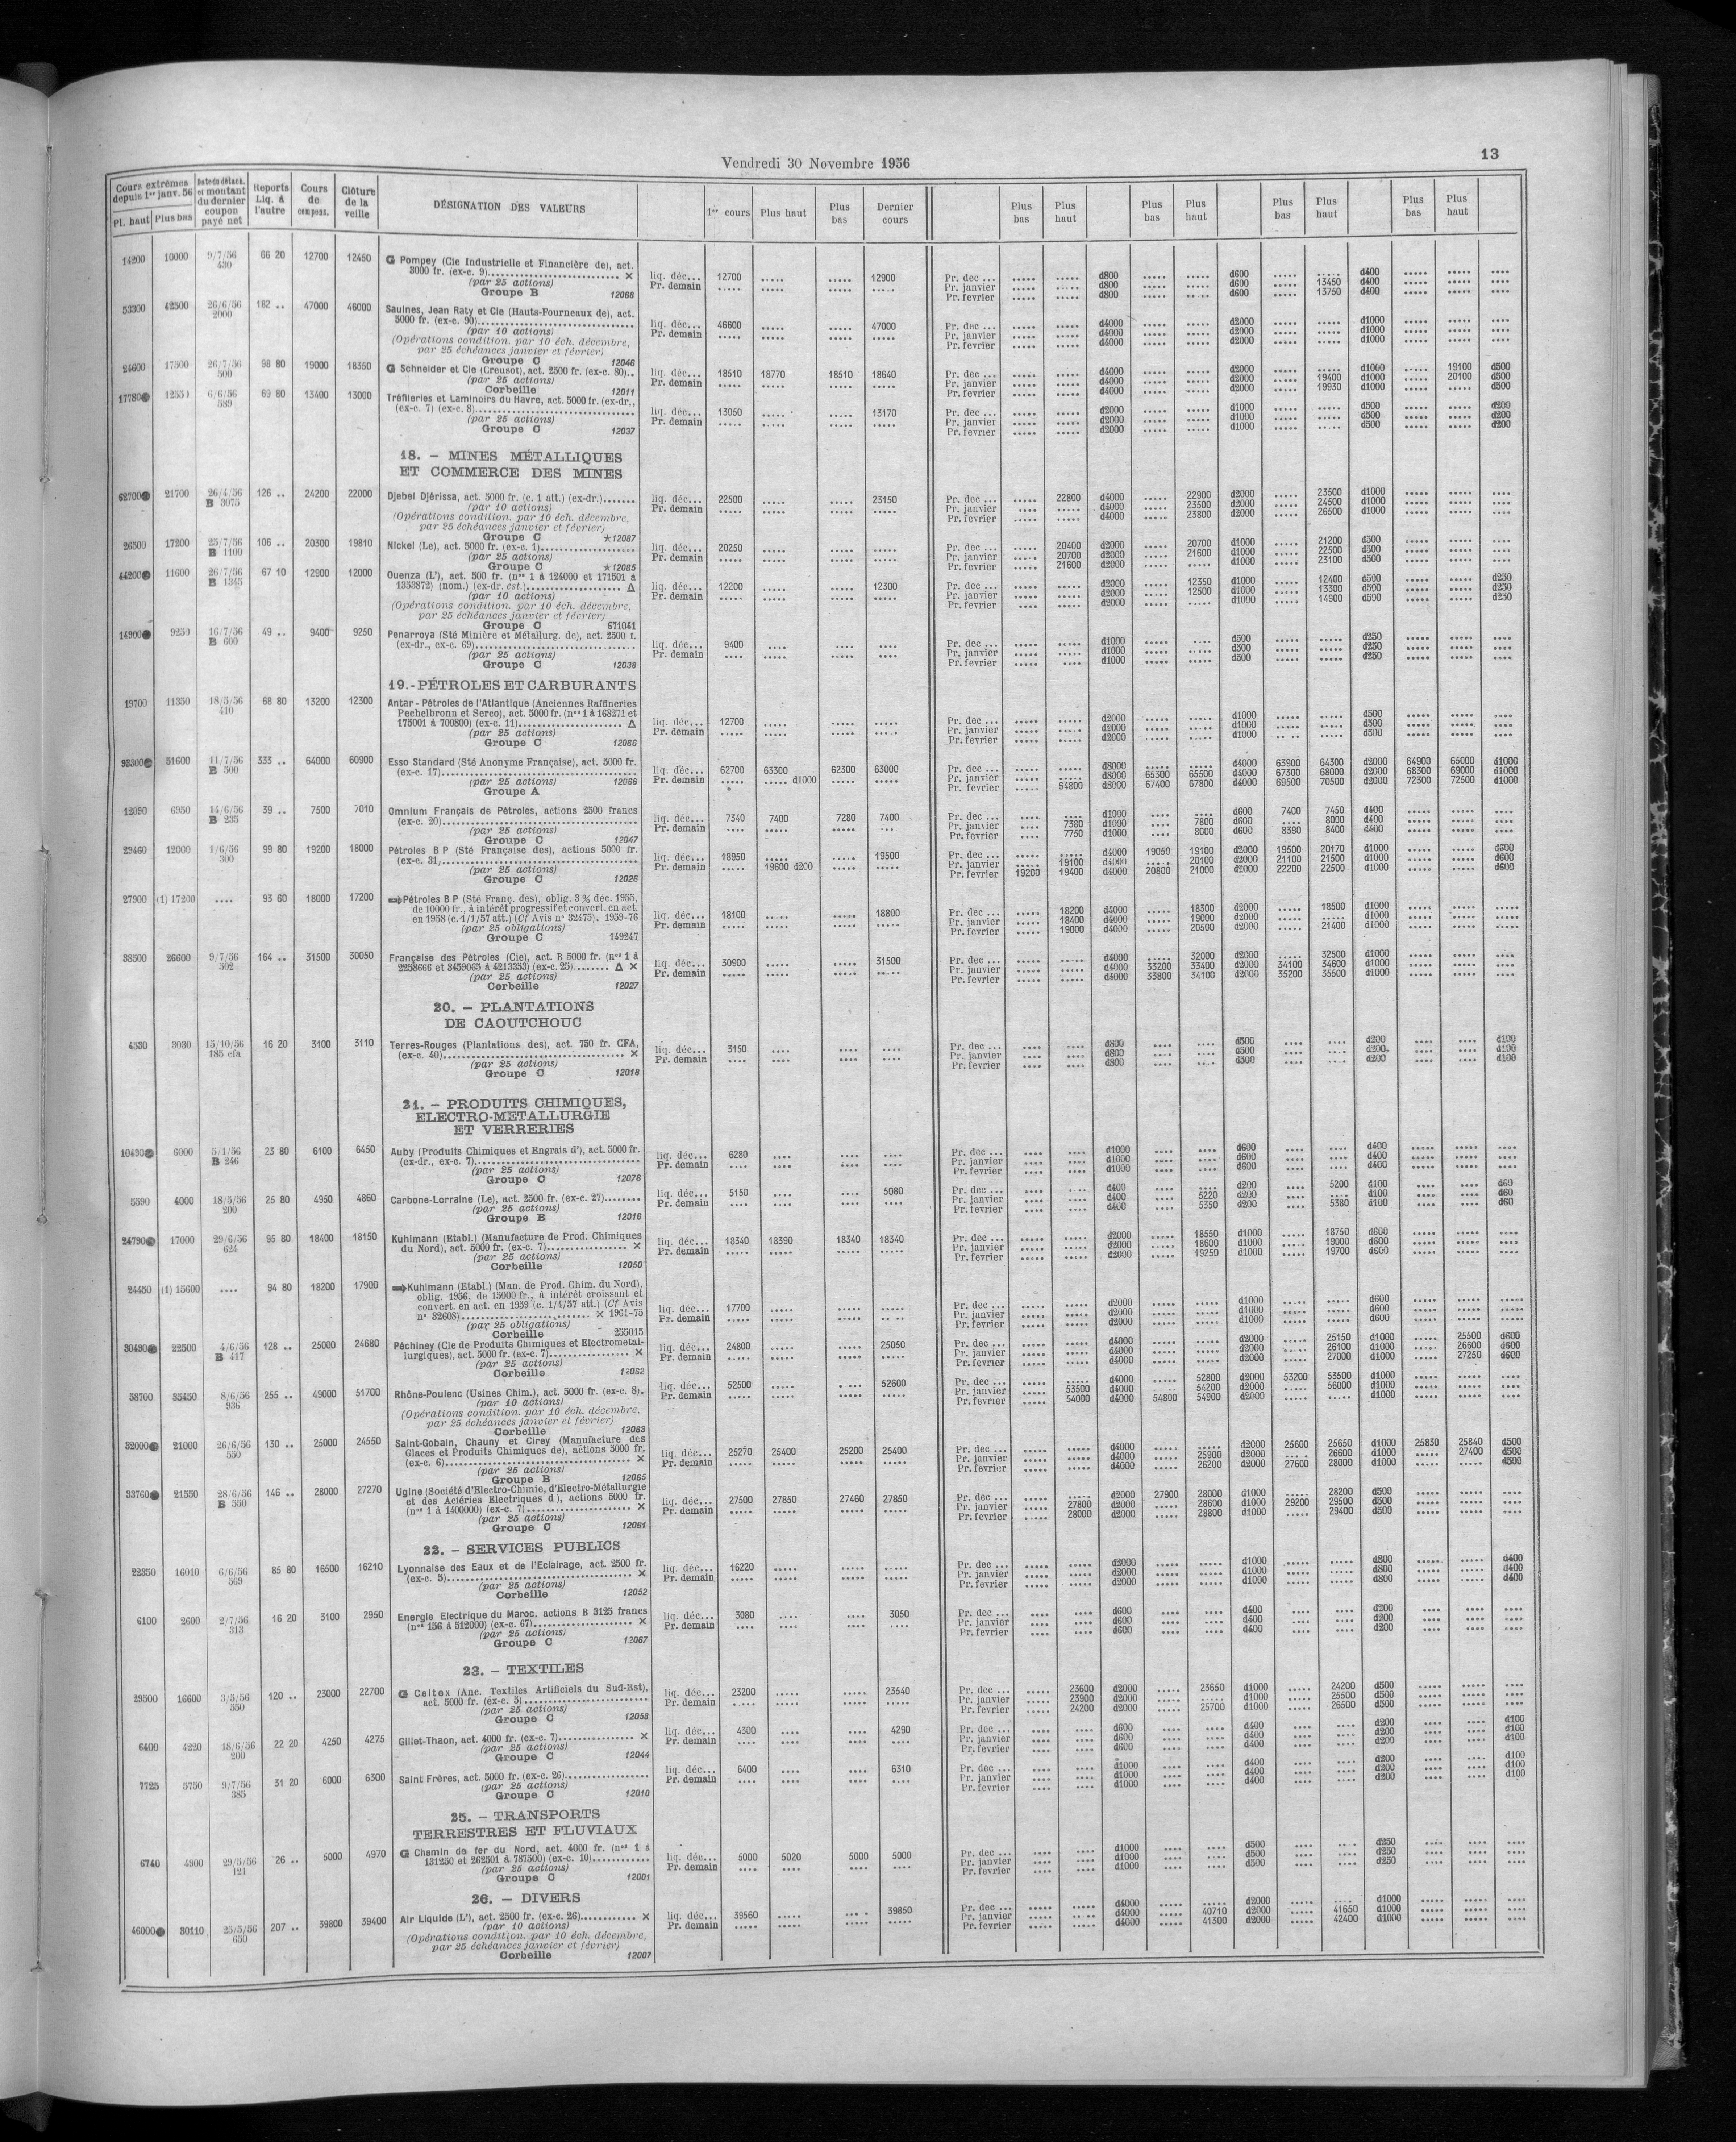 Vendredi 30 Novembre 1956
13
Cours extrêmes depuis 1er janv. 56 | Date de détach. et montant du dernier coupon payé net | Reports Liq. à l'autre | Cours de compens. | Clôture de la veille | DÉSIGNATION DES VALEURS | 1er cours | Plus haut | Plus bas | Dernier cours | Plus bas | Plus haut | Plus bas | Plus haut | Plus bas | Plus haut | Plus bas | Plus haut
Pl. haut | Plus bas
14200 10000 9/7/56 430 66 20 12700 12450 G Pompey (Cie Industrielle et Financière de), act.
3000 fr. (ex-c. 9) ×
liq. déc... 12700 ..... ..... 12900 Pr. dec ... d800 d600 ..... d400
(par 25 actions) Pr. demain Pr. janvier d800 d600 13450 d400
Groupe B 12068 Pr. fevrier d800 d600 13750 d400
53300 42500 26/6/56 2000 182 .. 47000 46000 Saulnes, Jean Raty et Cie (Hauts-Fourneaux de), act.
5000 fr. (ex-c. 90)
liq. déc... 46600 47000 Pr. dec ... d4000 d2000 d1000
(par 10 actions) Pr. demain Pr. janvier d4000 d2000 d1000
(Opérations condition. par 10 éch. décembre, Pr. fevrier d4000 d2000 d1000
par 25 échéances janvier et février)
Groupe C 12046
24600 17500 26/7/56 500 98 80 19000 18350 G Schneider et Cie (Creusot), act. 2500 fr. (ex-c. 80)..
liq. déc... 18510 18770 18510 18640 Pr. dec ... d4000 d2000 d1000 19100 d500
(par 25 actions) Pr. demain Pr. janvier d4000 d2000 19400 d1000 20100 d500
Corbeille 12011 Pr. fevrier d4000 d2000 19930 d1000 d500
17780 6/6/56 589 69 80 13400 13000 Tréfileries et Laminoirs du Havre, act. 5000 fr. (ex-dr.,
(ex-c. 7) (ex-c. 8)
liq. déc... 13050 13170 Pr. dec ... d2000 d1000 d500 d200
(par 25 actions) Pr. demain Pr. janvier d2000 d1000 d500 d200
Groupe C 12037 Pr. fevrier d2000 d1000 d500 d200
18. - MINES MÉTALLIQUES
ET COMMERCE DES MINES
62700 21700 26/4/56 B 3075 126 .. 24200 22000 Djebel Djérissa, act. 5000 fr. (c. 1 att.) (ex-dr.)
liq. déc... 22500 23150 Pr. dec ... 22800 d4000 22900 d2000 23500 d1000
(par 10 actions) Pr. demain Pr. janvier d4000 23500 d2000 24500 d1000
(Opérations condition. par 10 éch. décembre, Pr. fevrier d4000 23800 d2000 26500 d1000
par 25 échéances janvier et février)
Groupe C ★12087
26500 17200 25/7/56 B 1100 106 .. 20300 19810 Nickel (Le), act. 5000 fr. (ex-c. 1)
liq. déc... 20250 Pr. dec ... 20400 d2000 20700 d1000 21200 d500
(par 25 actions) Pr. demain Pr. janvier 20700 d2000 21600 d1000 22500 d500
Groupe C ★12085 Pr. fevrier 21600 d2000 d1000 23100 d500
44200 11600 26/7/56 B 1345 67 10 12900 12000 Ouenza (L'), act. 500 fr. (nos 1 à 124000 et 171501 à
1353872) (nom.) (ex-dr. est.) Δ
liq. déc... 12200 12300 Pr. dec ... d2000 12350 d1000 12400 d500 d250
(par 10 actions) Pr. demain Pr. janvier d2000 12500 d1000 13300 d500 d250
(Opérations condition. par 10 éch. décembre, Pr. fevrier d2000 d1000 14900 d500 d250
par 25 échéances janvier et février)
Groupe C 671041
14900 9250 16/7/56 B 600 49 .. 9400 9250 Penarroya (Sté Minière et Métallurg. de), act. 2500 f.
(ex-dr., ex-c. 69)
liq. déc... 9400 Pr. dec ... d1000 d500 d250
(par 25 actions) Pr. demain Pr. janvier d1000 d500 d250
Groupe C 12038 Pr. fevrier d1000 d500 d250
19.-PÉTROLES ET CARBURANTS
19700 11350 18/5/56 410 68 80 13200 12300 Antar-Pétroles de l'Atlantique (Anciennes Raffineries
Pechelbronn et Serco), act. 5000 fr. (nos 1 à 168271 et
175001 à 700800) (ex-c. 11) Δ
liq. déc... 12700 Pr. dec ... d2000 d1000 d500
(par 25 actions) Pr. demain Pr. janvier d2000 d1000 d500
Groupe C 12086 Pr. fevrier d2000 d1000 d500
93300 51600 11/7/56 B 500 333 .. 64000 60900 Esso Standard (Sté Anonyme Française), act. 5000 fr.
(ex-c. 17)
liq. déc... 62700 63300 62300 63000 Pr. dec ... d8000 d4000 63900 64300 d2000 64900 65000 d1000
(par 25 actions) 12086 Pr. demain d1000 Pr. janvier d8000 65300 65500 d4000 67300 68000 d2000 68300 69000 d1000
Groupe A Pr. fevrier 64800 d8000 67400 67800 d4000 69500 70500 d2000 72300 72500 d1000
12090 6950 14/6/56 B 235 39 .. 7500 7010 Omnium Français de Pétroles, actions 2500 francs
(ex-c. 20)
liq. déc... 7340 7400 7280 7400 Pr. dec ... d1000 d600 7400 7450 d400
(par 25 actions) Pr. demain Pr. janvier 7380 d1000 7800 d600 8000 d400
Groupe C 12047 Pr. fevrier 7750 d1000 8000 d600 8390 8400 d400
29460 12000 1/6/56 300 99 80 19200 18000 Pétroles B P (Sté Française des), actions 5000 fr.
(ex-c. 31)
liq. déc... 18950 19500 Pr. dec ... d4000 19050 19100 d2000 19500 20170 d1000 d600
(par 25 actions) Pr. demain 19600 d200 Pr. janvier 19100 d4000 20100 d2000 21100 21500 d1000 d600
Groupe C 12026 Pr. fevrier 19200 19400 d4000 20800 21000 d2000 22200 22500 d1000 d600
27900 (1) 17200 .... 93 60 18000 17200 Pétroles B P (Sté Franç. des), oblig. 3 % déc. 1955,
de 10000 fr., à intérêt progressif et convert. en act.
en 1958 (c. 1/1/57 att.) (Cf Avis n° 32475). 1959-76
liq. déc... 18100 18800 Pr. dec ... 18200 d4000 18300 d2000 18500 d1000
(par 25 obligations) Pr. demain Pr. janvier 18400 d4000 19000 d2000 d1000
Groupe C 149247 Pr. fevrier 19000 d4000 20500 d2000 21400 d1000
38500 26600 9/7/56 502 164 .. 31500 30050 Française des Pétroles (Cie), act. B 5000 fr. (nos 1 à
2258666 et 3459065 à 4213353) (ex-c. 25) Δ ×
liq. déc... 30900 31500 Pr. dec ... d4000 32000 d2000 32500 d1000
(par 25 actions) Pr. demain Pr. janvier d4000 33200 33400 d2000 34100 34600 d1000
Corbeille 12027 Pr. fevrier d4000 33800 34100 d2000 35200 35500 d1000
20. - PLANTATIONS
DE CAOUTCHOUC
4550 3030 15/10/56 185 cfa 16 20 3100 3110 Terres-Rouges (Plantations des), act. 750 fr. CFA,
(ex-c. 40) ×
liq. déc... 3150 Pr. dec ... d800 d500 d200 d100
(par 25 actions) Pr. demain Pr. janvier d800 d500 d200 d100
Groupe C 12018 Pr. fevrier d800 d500 d200 d100
21. - PRODUITS CHIMIQUES,
ELECTRO-METALLURGIE
ET VERRERIES
10490 6000 5/1/56 B 246 23 80 6100 6450 Auby (Produits Chimiques et Engrais d'), act. 5000 fr.
(ex-dr., ex-c. 7)
liq. déc... 6280 Pr. dec ... d1000 d600 d400
(par 25 actions) Pr. demain Pr. janvier d1000 d600 d400
Groupe C 12076 Pr. fevrier d1000 d600 d400
5590 4000 18/5/56 200 25 80 4950 4860 Carbone-Lorraine (Le), act. 2500 fr. (ex-c. 27)
liq. déc... 5150 5080 Pr. dec ... d400 d200 5200 d100 d60
(par 25 actions) Pr. demain Pr. janvier d400 5220 d200 d100 d60
Groupe B 12016 Pr. fevrier d400 5350 d200 5380 d100 d60
24790 17000 29/6/56 624 95 80 18400 18150 Kuhlmann (Etabl.) (Manufacture de Prod. Chimiques
du Nord), act. 5000 fr. (ex-c. 7) ×
liq. déc... 18340 18390 18340 18340 Pr. dec ... d2000 18550 d1000 18750 d600
(par 25 actions) Pr. demain Pr. janvier d2000 18600 d1000 19000 d600
Corbeille 12050 Pr. fevrier d2000 19250 d1000 19700 d600
24450 (1) 15600 .... 94 80 18200 17900 Kuhlmann (Etabl.) (Man. de Prod. Chim. du Nord),
oblig. 1956, de 15000 fr., à intérêt croissant et
convert. en act. en 1959 (c. 1/4/57 att.) (Cf Avis
n° 32608) × 1961-75
liq. déc... 17700 Pr. dec ... d2000 d1000 d600
(par 25 obligations) Pr. demain Pr. janvier d2000 d1000 d600
Corbeille 255015 Pr. fevrier d2000 d1000 d600
30490 22500 4/6/56 B 417 128 .. 25000 24680 Péchiney (Cie de Produits Chimiques et Electrométal-
lurgiques), act. 5000 fr. (ex-c. 7) ×
liq. déc... 24800 25050 Pr. dec ... d4000 d2000 25150 d1000 25500 d600
(par 25 actions) Pr. demain Pr. janvier d4000 d2000 26100 d1000 26600 d600
Corbeille 12082 Pr. fevrier d4000 d2000 27000 d1000 27250 d600
58700 35450 8/6/56 936 255 .. 49000 51700 Rhône-Poulenc (Usines Chim.), act. 5000 fr. (ex-c. 8).
liq. déc... 52500 52600 Pr. dec ... d4000 52800 d2000 53200 53500 d1000
(par 10 actions) Pr. demain Pr. janvier 53500 d4000 54200 d2000 56000 d1000
(Opérations condition. par 10 éch. décembre, Pr. fevrier 54000 d4000 54800 54900 d2000 d1000
par 25 échéances janvier et février)
Corbeille 12063
32000 21000 26/6/56 550 130 .. 25000 24550 Saint-Gobain, Chauny et Cirey (Manufacture des
Glaces et Produits Chimiques de), actions 5000 fr.
(ex-c. 6) ×
liq. déc... 25270 25400 25200 25400 Pr. dec ... d4000 d2000 25600 25650 d1000 25830 25840 d500
(par 25 actions) Pr. demain Pr. janvier d4000 25900 d2000 26600 d1000 27400 d500
Groupe B 12065 Pr. fevrier d4000 26200 d2000 27600 28000 d1000 d500
33760 21550 28/6/56 B 550 146 .. 28000 27270 Ugine (Société d'Electro-Chimie, d'Electro-Métallurgie
et des Aciéries Electriques d'), actions 5000 fr.
(nos 1 à 1400000) (ex-c. 7) ×
liq. déc... 27500 27850 27460 27850 Pr. dec ... d2000 27900 28000 d1000 28200 d500
(par 25 actions) Pr. demain Pr. janvier 27800 d2000 28600 d1000 29200 29500 d500
Groupe C 12061 Pr. fevrier 28000 d2000 28800 d1000 29400 d500
22. - SERVICES PUBLICS
22350 16010 6/6/56 569 85 80 16500 16210 Lyonnaise des Eaux et de l'Eclairage, act. 2500 fr.
(ex-c. 5) ×
liq. déc... 16220 Pr. dec ... d2000 d1000 d800 d400
(par 25 actions) Pr. demain Pr. janvier d2000 d1000 d800 d400
Corbeille 12052 Pr. fevrier d2000 d1000 d800 d400
6100 2600 2/7/56 313 16 20 3100 2950 Energie Electrique du Maroc. actions B 3125 francs
(nos 156 à 512000) (ex-c. 67) ×
liq. déc... 3080 3050 Pr. dec ... d600 d400 d200
(par 25 actions) Pr. demain Pr. janvier d600 d400 d200
Groupe C 12067 Pr. fevrier d600 d400 d200
23. - TEXTILES
29500 16600 3/5/56 550 120 .. 23000 22700 G Celtex (Anc. Textiles Artificiels du Sud-Est),
act. 5000 fr. (ex-c. 5)
liq. déc... 23200 23540 Pr. dec ... 23600 d2000 23650 d1000 24200 d500
(par 25 actions) Pr. demain Pr. janvier 23900 d2000 d1000 25500 d500
Groupe C 12058 Pr. fevrier 24200 d2000 25700 d1000 26500 d500
6400 4220 18/6/56 200 22 20 4250 4275 Gillet-Thaon, act. 4000 fr. (ex-c. 7) ×
liq. déc... 4300 4290 Pr. dec ... d600 d400 d200 d100
(par 25 actions) Pr. demain Pr. janvier d600 d400 d200 d100
Groupe C 12044 Pr. fevrier d600 d400 d200 d100
7725 5750 9/7/56 385 31 20 6000 6300 Saint Frères, act. 5000 fr. (ex-c. 26)
liq. déc... 6400 6310 Pr. dec ... d1000 d400 d200 d100
(par 25 actions) Pr. demain Pr. janvier d1000 d400 d200 d100
Groupe C 12010 Pr. fevrier d1000 d400 d200 d100
25. - TRANSPORTS
TERRESTRES ET FLUVIAUX
6740 4900 29/5/56 121 26 .. 5000 4970 G Chemin de fer du Nord, act. 4000 fr. (nos 1 à
131250 et 262501 à 787500) (ex-c. 10)
liq. déc... 5000 5020 5000 5000 Pr. dec ... d1000 d500 d250
(par 25 actions) Pr. demain Pr. janvier d1000 d500 d250
Groupe C 12001 Pr. fevrier d1000 d500 d250
26. - DIVERS
46000 30110 25/5/56 650 207 .. 39800 39400 Air Liquide (L'), act. 2500 fr. (ex-c. 26) ×
liq. déc... 39560 39850 Pr. dec ... d4000 d2000 d1000
(par 10 actions) Pr. demain Pr. janvier d4000 40710 d2000 41650 d1000
(Opérations condition. par 10 éch. décembre, Pr. fevrier d4000 41300 d2000 42400 d1000
par 25 échéances janvier et février)
Corbeille 12007